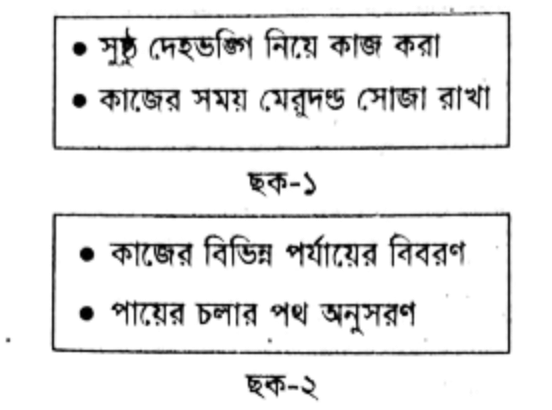 • সুষ্ঠু দেহভঙ্গি নিয়ে কাজ করা
• কাজের সময় মেরুদণ্ড সোজা রাখা
ছক-১
• কাজের বিভিন্ন পর্যায়ের বিবরণ
• পায়ের চলার পথ অনুসরণ
ছক-২